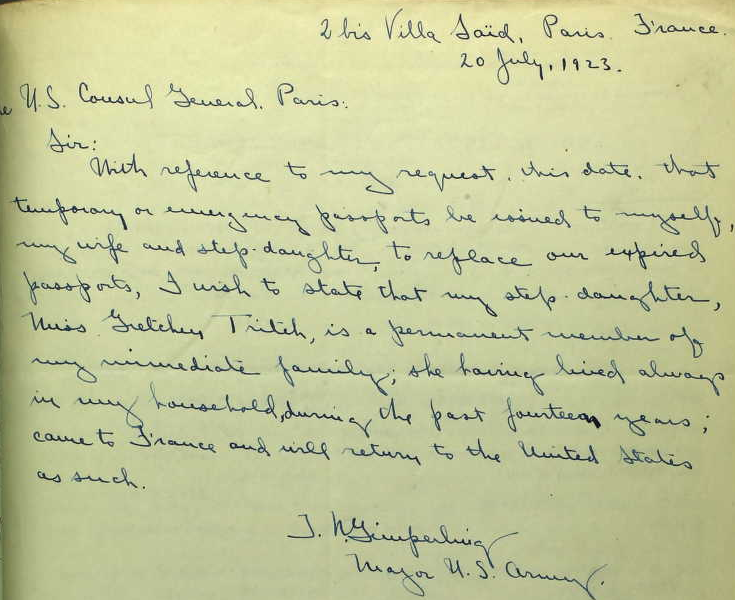 2 bis Villa Saïd, Paris. France.
20 July, 1923.
U.S. Consul General. Paris:
Sir:
With reference to my request, this date, that
temporary or emergency passports be issued to myself,
my wife and step-daughter, to replace our expired
passports, I wish to state that my step-daughter,
Miss Gretchen Tritch, is a permanent member of
my immediate family; she having lived always
in my household, during the past fourteen years;
came to France and will return to the United States
as such.
T. N. Gimperling
Major U.S. Army.